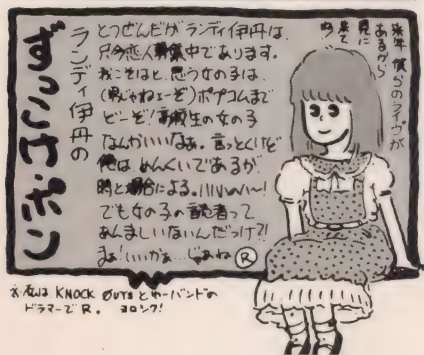 ランディ伊丹の
ずっこけ・ポン
とつぜんだがランディ伊丹は、
只今恋人募集中であります。
我こそはと、思う女の子は、
(男じゃねェーぞ)ポプコムまで
どーぞ!高校生の女の子
なんかいいなぁ。言っとくけど
俺は めんくいであるが、
時と場合による。
でも女の子の読者って
あんましいないんだっけ?!
まぁ!いいかぁ…じゃあね Ⓡ
来年 僕らのライヴが
あるから
見に
来て
ね
※私は KNOCK OUTS とゆーバンドの
ドラマーで R. ヨロシク!